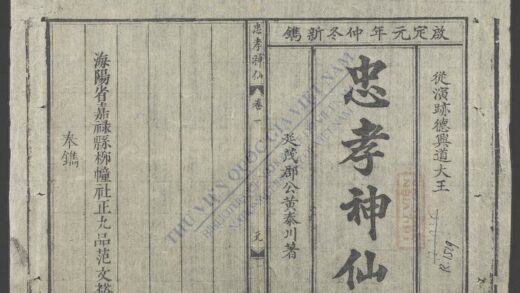 啟定元年仲冬新鐫
從演跡德興道大王
忠孝神仙
延茂郡公黃泰川著
忠孝神仙 卷一 元
海陽省嘉祿縣柳幢社正九品范文裕
奉鐫
THƯ VIỆN QUỐC GIA VIỆT NAM
R.159